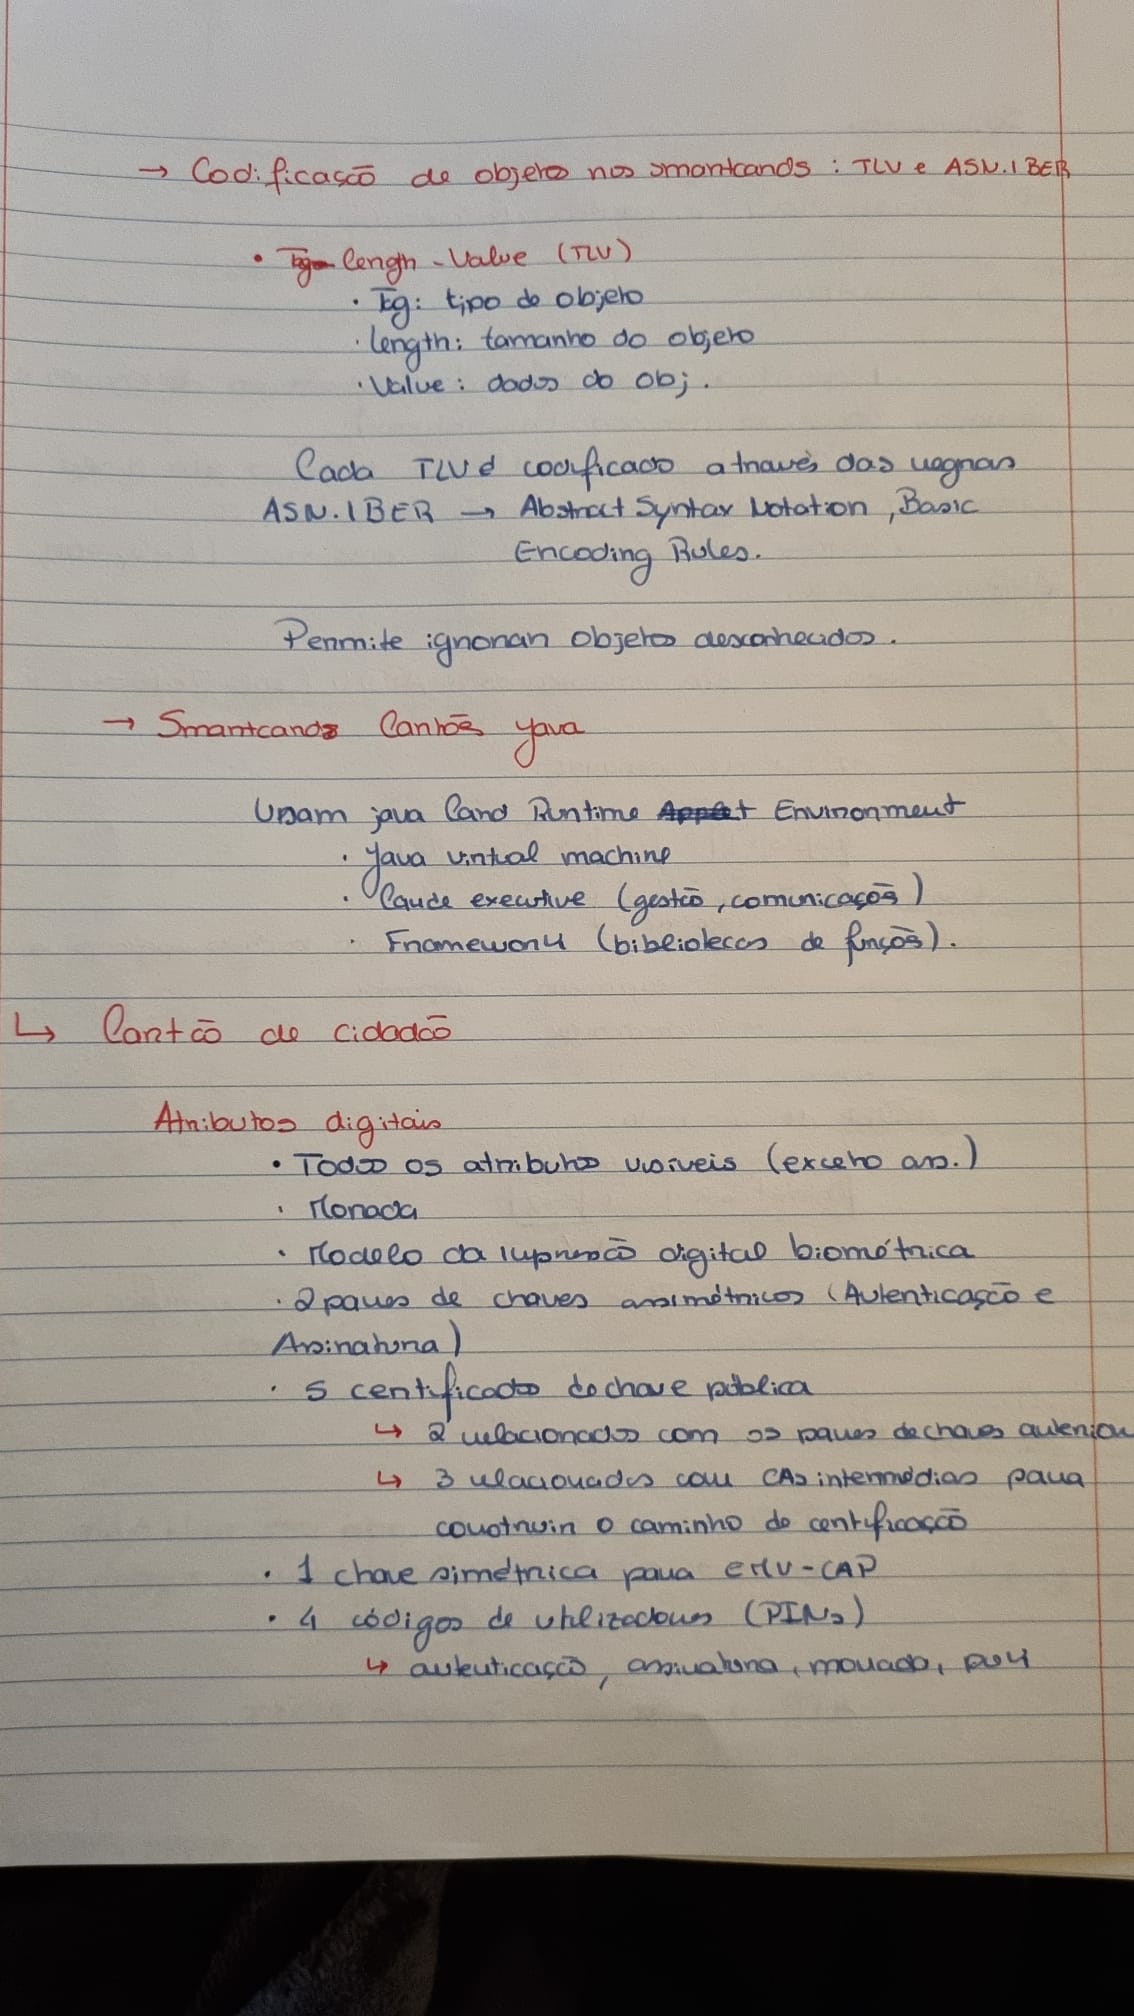 → Codificação de objeto nos smartcards : TLV e ASN.1 BER
• Tag - lengh - Value (TLV)
• Tag: tipo do objeto
• length: tamanho do objeto
• Value: dados do obj.
Cada TLV é codificado através das regras
ASN.1 BER → Abstract Syntax Notation, Basic
Encoding Rules.
Permite ignorar objetos desconhecidos.
→ Smartcards Cartões Java
Usam java Card Runtime Environment
• Java virtual machine
• Card executive (gestão, comunicações)
• Framework (bibliotecas de funções).
↳ Cartão de cidadão
Atributos digitais
• Todos os atributos visíveis (exceto ass.)
• Morada
• Modelo da impressão digital biométrica
• 2 pares de chaves assimétricos (Autenticação e
Assinatura)
• 5 certificados de chave pública
↳ 2 relacionados com os pares de chaves
↳ 3 relacionados com CAs intermédias para
construir o caminho de certificação
• 1 chave simétrica para EMV-CAP
• 4 códigos de utilizadores (PINs)
↳ autenticação, assinatura, morada, PUK